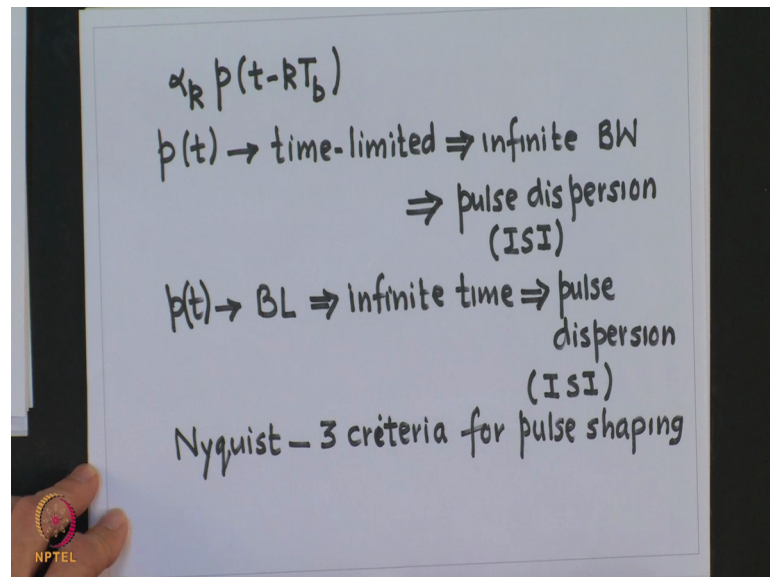 αk p(t-kTb)
p(t) → time-limited ⇒ infinite BW
⇒ pulse dispersion
(ISI)
p(t) → BL ⇒ infinite time ⇒ pulse
dispersion
(ISI)
Nyquist – 3 criteria for pulse shaping
NPTEL